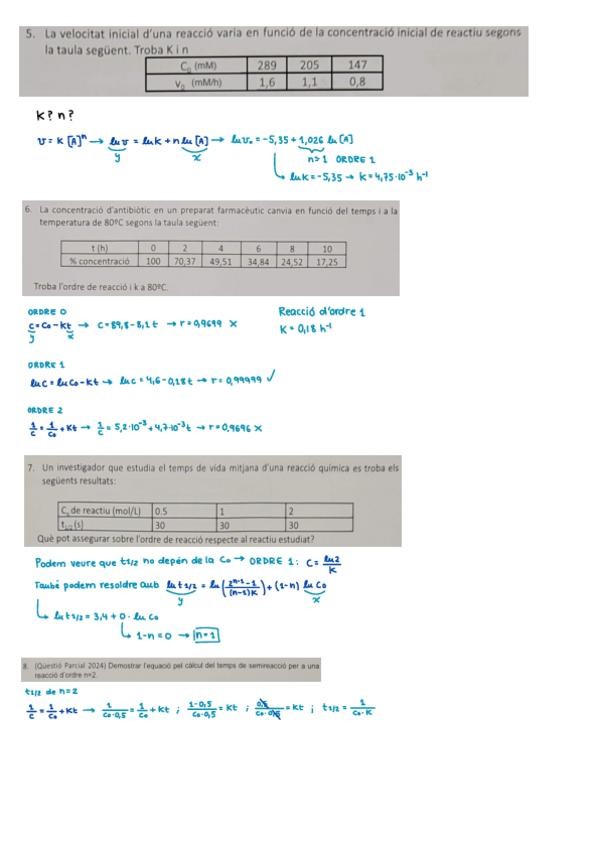 5. La velocitat inicial d'una reacció varia en funció de la concentració inicial de reactiu segons
la taula següent. Troba K i n
C₀ (mM) 289 205 147
V₀ (mM/h) 1,6 1,1 0,8
k? n?
v = k [A]ⁿ → ln v = ln k + n ln [A] → ln v₀ = -5,35 + 1,026 ln [A]
y x n≃1 ORDRE 1
ln k = -5,35 → k = 4,75·10⁻³ h⁻¹
6. La concentració d'antibiòtic en un preparat farmacèutic canvia en funció del temps i a la
temperatura de 80ºC segons la taula següent:
t (h) 0 2 4 6 8 10
% concentració 100 70,37 49,51 34,84 24,52 17,25
Troba l'ordre de reacció i k a 80ºC.
ORDRE 0
C = C₀ - kt → C = 89,8 - 8,1 t → r = 0,9699 x
y x
Reacció d'ordre 1
K = 0,18 h⁻¹
ORDRE 1
ln C = ln C₀ - kt → ln C = 4,6 - 0,18 t → r = 0,99999 ✓
ORDRE 2
1/C = 1/C₀ + Kt → 1/C = 5,2·10⁻³ + 4,7·10⁻³ t → r = 0,9696 x
7. Un investigador que estudia el temps de vida mitjana d'una reacció química es troba els
següents resultats:
C₀ de reactiu (mol/L) 0.5 1 2
t₁/₂ (s) 30 30 30
Què pot assegurar sobre l'ordre de reacció respecte al reactiu estudiat?
Podem veure que t1/2 no depèn de la C₀ → ORDRE 1: C = ln2/K
També podem resoldre amb ln t1/2 = ln (2ⁿ⁻¹-1/(n-1)K) + (1-n) ln C₀
y x
ln t1/2 = 3,4 + 0 · ln C₀
1-n = 0 → n=1
8. (Qüestió Parcial 2024) Demostrar l'equació pel càlcul del temps de semireacció per a una
reacció d'ordre n=2.
t1/2 de n=2
1/C = 1/C₀ + Kt → 1/C₀·0,5 = 1/C₀ + Kt ; 1-0,5/C₀·0,5 = Kt ; 0,5/C₀·0,5 = Kt ; t1/2 = 1/C₀·K